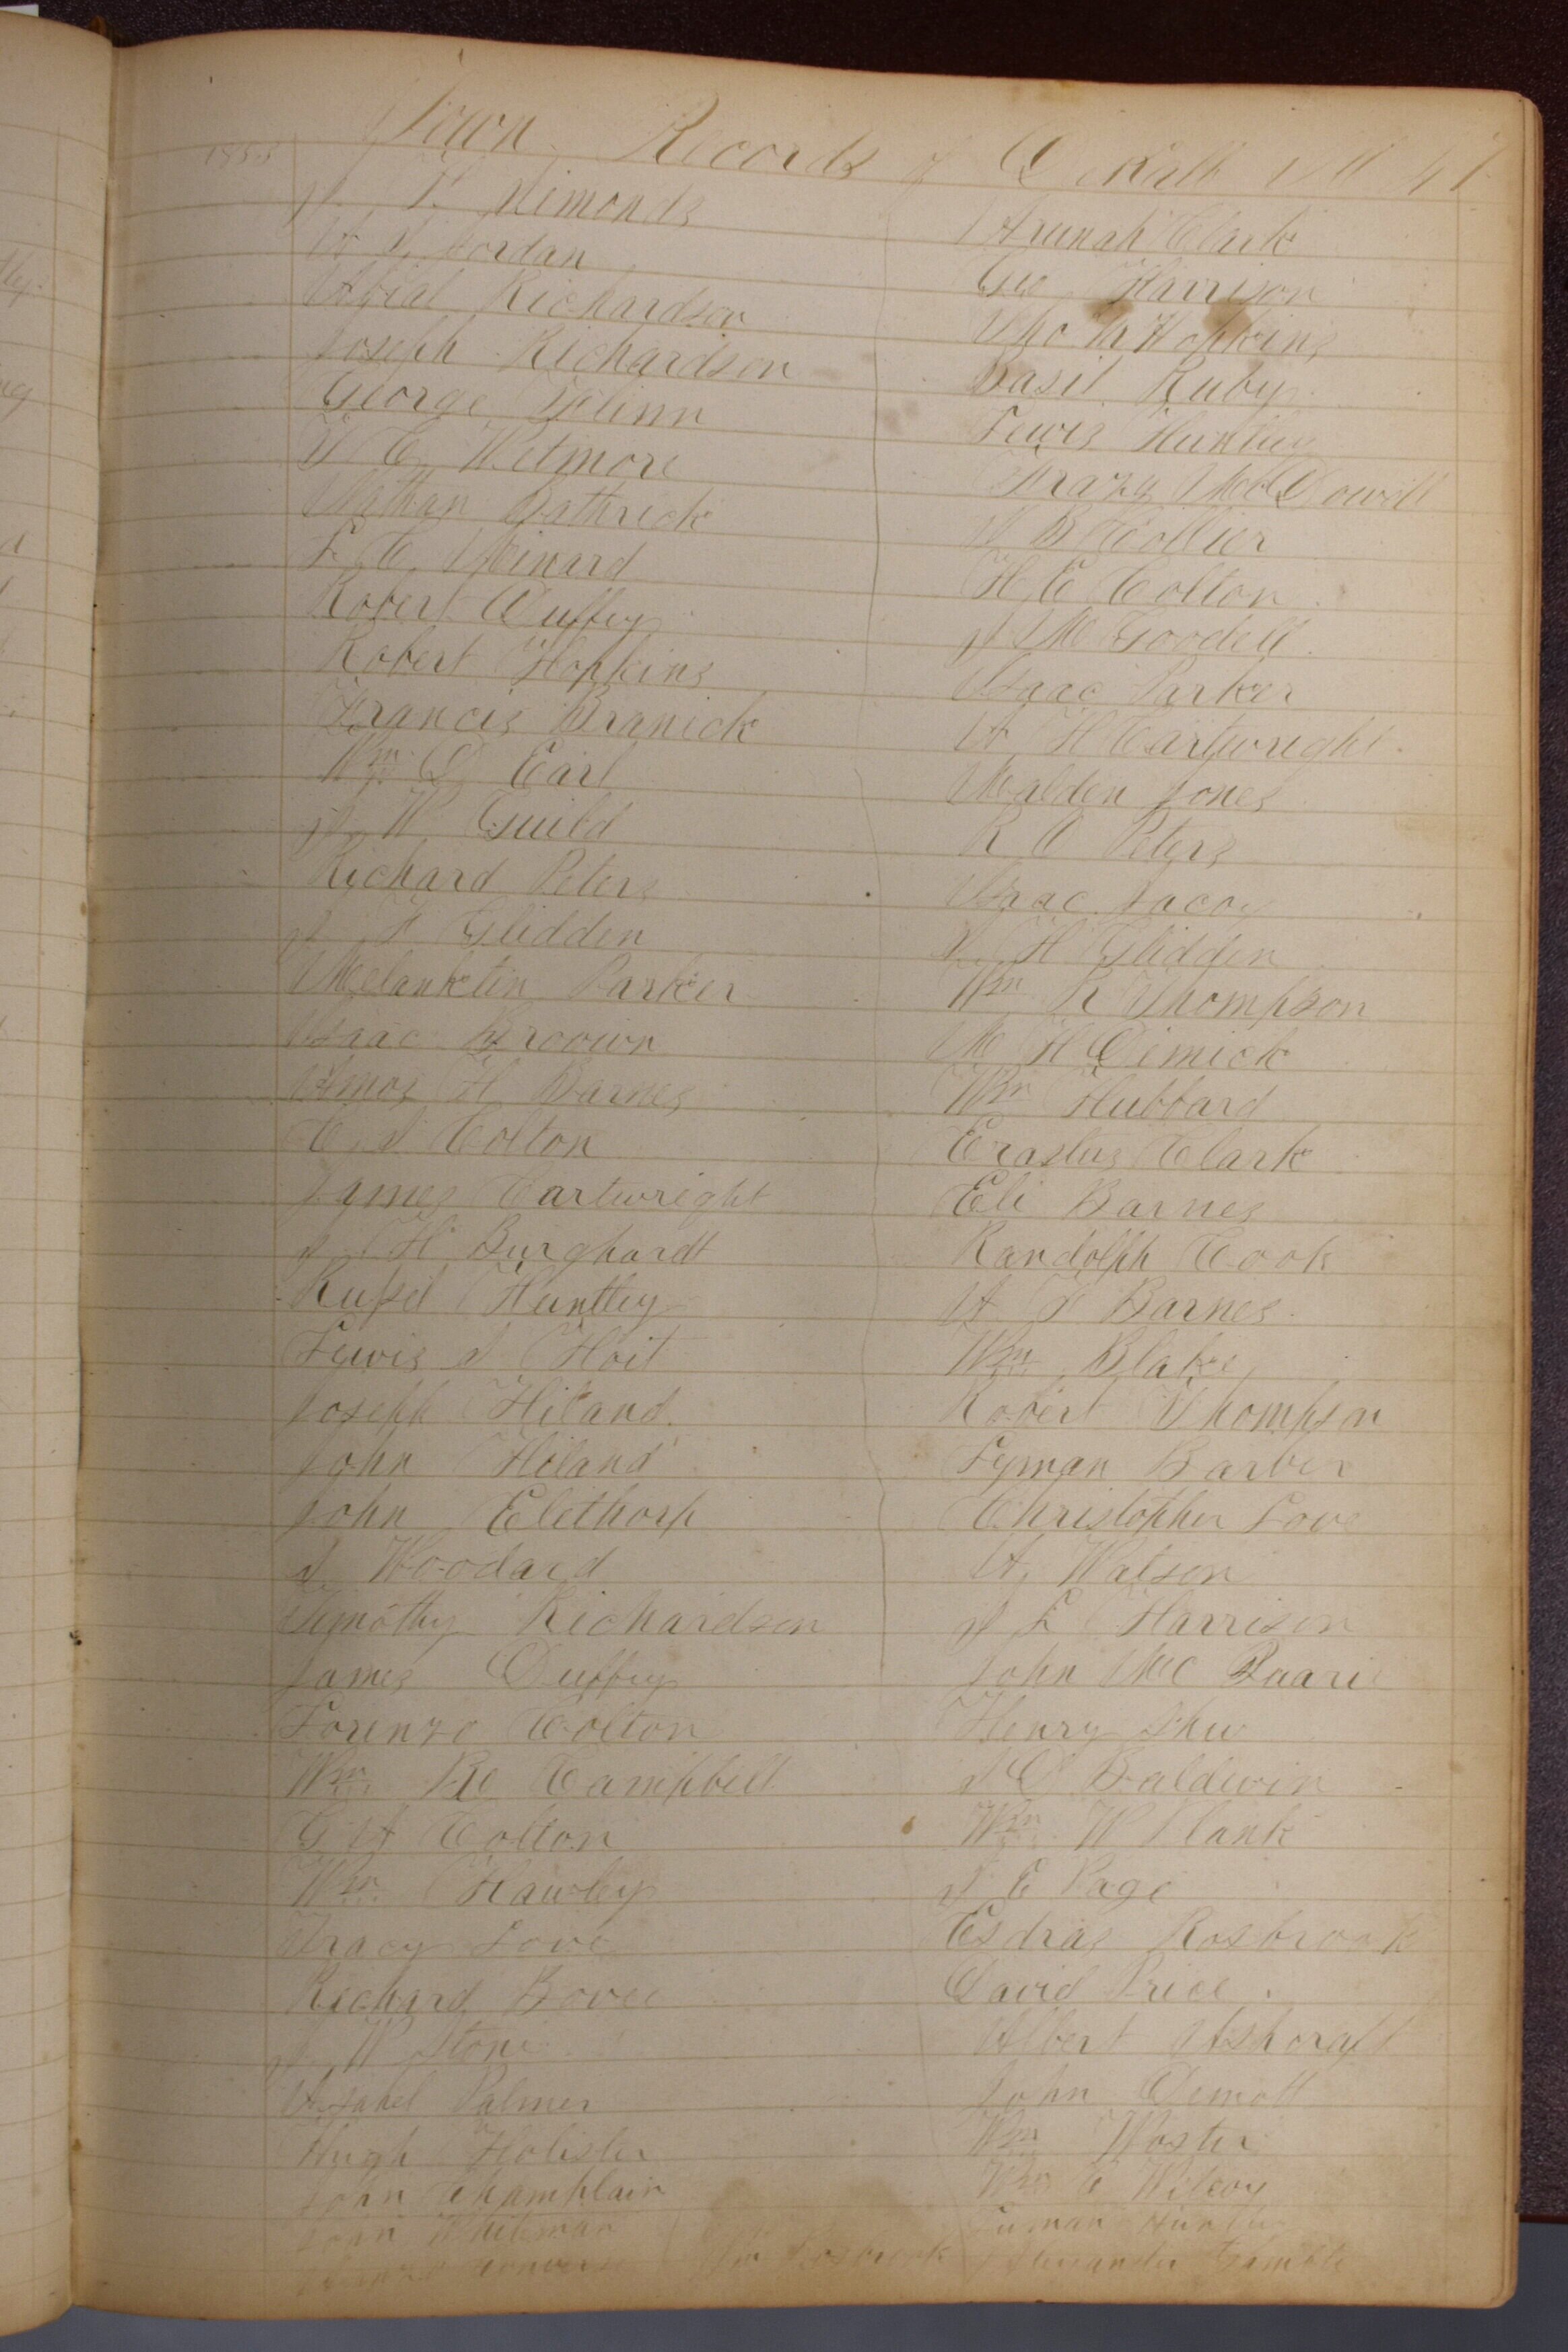 Town Records of DeKalb Ill 41
1855
J. F. Simonds
A. J. Jordan
Abial Richardson
Joseph Richardson
George Flinn
T. C. Wetmore
Nathan Bathrick
L. C. Meinard
Robert Duffey
Robert Hopkins
Francis Branick
Wm D Earl
J. W. Guild
Richard Peters
J. F. Glidden
Melanktin Parker
Isaac Broown
Amos H. Barnes
C. S Colton
James Cartwright
S. H Burghardt
Russel Huntley
Lewis S Hoit
Joseph Hiland
John Hiland
John Elethorp
S. Woodard
Timothy Richardson
James Duffey
Lorenzo Colton
Wm Rl Campbell
G A Colton
Wm Hawley
Tracy Love
Richard Bovee
J. W Stone
Asahel Palmer
Hugh Holister
John Champlain
John Whiteman
Converse
Rosbrook
Arunah Clark
Geo Harrison
Tho M Hopkins
Basil Ruby
Lewis Huntley
McDowell
S B Collier
H. C Colton
J M Goodell
Isaac Parker
A H Cartwright
Malden Jones
R O Peters
Isaac Lacoy
J. H Glidden
Wm R Thompson
M H Dimick
Wm Hubbard
Erastus Clark
Eli Barnes
Randolph Cook
A T Barnes
Wm Blake
Robert Thompson
Lyman Barber
Christopher Love
A. Watson
J L Harrison
John Mc Quarie
Henry Shew
S D Baldwin
Wm W Plank
S E Page
Esdras Rosbrook
David Price
Albert Ashcraft
John Demott
Wm Woster
Wm C Wilcoy
Luman Huntley
Alexander Gamble